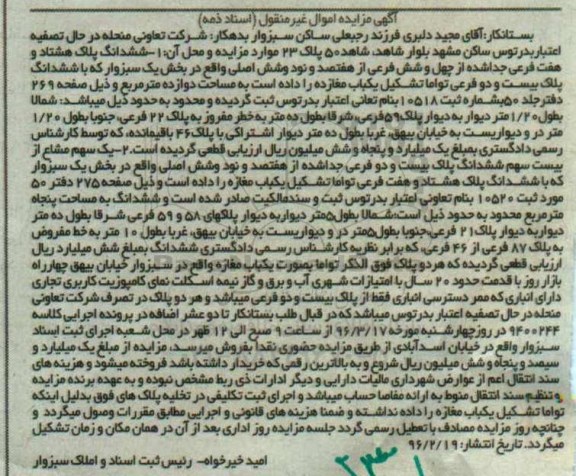 آگهی مزایده اموال غیرمنقول (اسناد ذمه)
بستانکار: آقای مجید دلبری فرزند رجبعلی ساکن سبزوار بدهکار: شرکت تعاونی منحله در حال تصفیه
اعتبار بدر توس ساکن مشهد بلوار شاهد، شاهد ۵۰ پلاک ۲۳ موارد مزایده و محل آن: ۱-ششدانگ پلاک هشتاد و
هفت فرعی جداشده از چهل و شش فرعی از هفتصد و نود وشش اصلی واقع در بخش یک سبزوار که با ششدانگ
پلاک بیست و دو فرعی تواما تشکیل یکباب مغازه را داده است به مساحت دوازده مترمربع و ذیل صفحه ۲۶۹
دفتر جلد ۵۰ بشماره ثبت ۱۰۵۱۸ بنام تعانی اعتبار بدر توس ثبت گردیده و محدود به حدود ذیل میباشد: شمالا
بطول ۱/۲۰ متر دیوار به دیوار پلاک ۵۹ فرعی، شرقا بطول ده متر به خطر مفروز به پلاک ۲۲ فرعی، جنوبا بطول ۱/۲۰
متر در و دیواریست به خیابان بیهق، غربا بطول ده متر دیوار اشتراکی با پلاک ۴۶ باقیمانده، که توسط کارشناس
رسمی دادگستری بمبلغ یک میلیارد و پنجاه و شش میلیون ریال ارزیابی قطعی گردیده است. ۲-یک سهم مشاع از
بیست سهم ششدانگ پلاک بیست و دو فرعی جداشده از هفتصد و نود وشش اصلی واقع در بخش یک سبزوار
که با ششدانگ پلاک هشتاد و هفت فرعی تواما تشکیل یکباب مغازه را داده است و ذیل صفحه ۲۷۵ دفتر ۵۰
مورد ثبت ۱۰۵۲۰ بنام تعاونی اعتبار بدر توس ثبت و سندمالکیت صادر شده است و ششدانگ به مساحت پنجاه
مترمربع محدود به حدود ذیل است: شمالا بطول ۵ متر دیوار به دیوار پلاکهای ۵۸ و ۵۹ فرعی شرقا بطول ده متر
دیوار به دیوار پلاک ۲۱ فرعی، جنوبا بطول ۵ متر در و دیواریست به خیابان بیهق، غربا بطول ۱۰ متر به خط مفروض
به پلاک ۸۷ فرعی از ۴۶ فرعی، که برابر نظریه کارشناس رسمی دادگستری ششدانگ بمبلغ شش میلیارد ریال
ارزیابی قطعی گردیده که هر دو پلاک فوق الذکر تواما بصورت یکباب مغازه واقع در سبزوار خیابان بیهق چهارراه
بازار روز با قدمت حدود ۲۰ سال با امتیازات شهری آب و برق و گاز نیمه اسکلت نمای کامپوزیت کاربری تجاری
دارای انباری که ممر دسترسی انباری فقط از پلاک بیست و دو فرعی میباشد و هر دو پلاک در تصرف شرکت تعاونی
منحله در حال تصفیه اعتبار بدر توس میباشد که در قبال طلب بستانکار تا دو عشر اضافه در پرونده اجرایی کلاسه
۹۴۰۰۲۴۴ در روز چهارشنبه مورخه ۹۶/۳/۱۷ از ساعت ۹ صبح الی ۱۲ ظهر در محل شعبه اجرای ثبت اسناد
سبزوار واقع در خیابان اسدآبادی از طریق مزایده حضوری نقدا بفروش میرسد، مزایده از مبلغ یک میلیارد و
سیصد و پنجاه و شش میلیون ریال شروع و به بالاترین رقمی که خریدار داشته باشد فروخته میشود و هزینه های
سند انتقال اعم از عوارض شهرداری مالیات دارایی و دیگر ادارات ذی ربط مشخص نبوده و به عهده برنده مزایده
و تنظیم سند انتقال منوط به ارائه مفاصا حساب میباشد و اجرای ثبت تکلیفی در تخلیه پلاک های فوق بدلیل اینکه
تواما تشکیل یکباب مغازه را داده نداشته و ضمنا هزینه های قانونی و اجرایی مطابق مقررات وصول میگردد و
چنانچه روز مزایده مصادف با تعطیل رسمی گردد جلسه مزایده روز اداری بعد از آن در همان مکان و زمان تشکیل
میگردد. تاریخ انتشار: ۹۶/۲/۱۹
امید خیرخواه- رئیس ثبت اسناد و املاک سبزوار